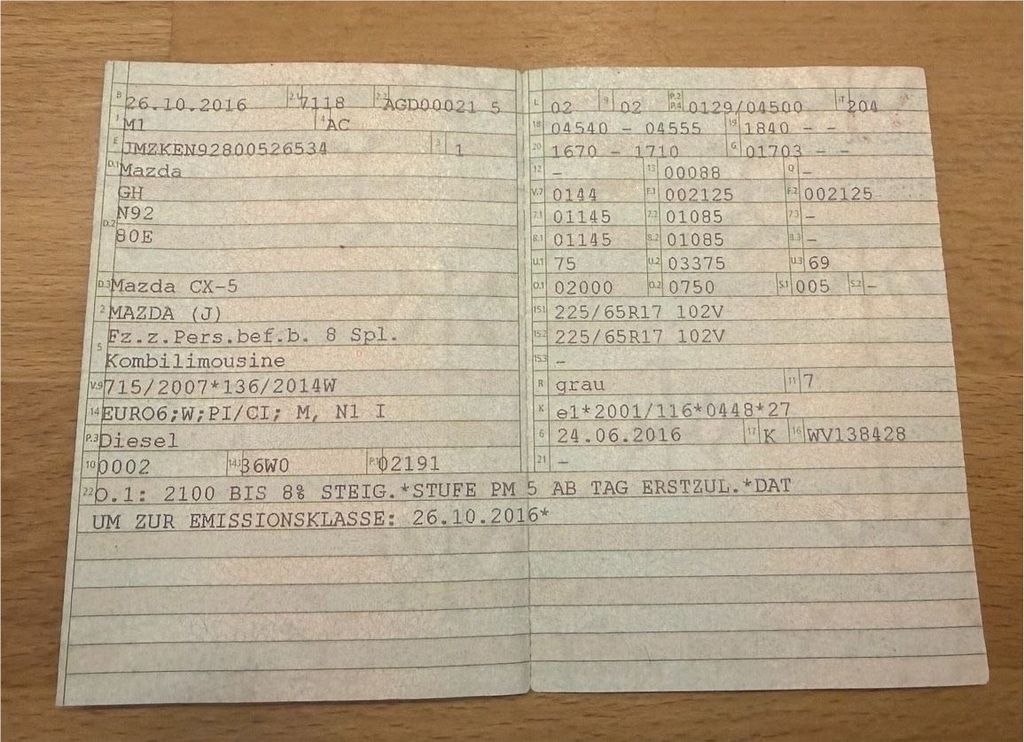 B 26.10.2016 2.1 7118 2.2 AGD00021 5
J M1 4 AC
E JMZKEN92800526534 3 1
D.1 Mazda
D.2 GH
N92
80E
D.3 Mazda CX-5
2 MAZDA (J)
5 Fz.z.Pers.bef.b. 8 Spl.
Kombilimousine
V.9 715/2007*136/2014W
14 EURO6;W;PI/CI; M, N1 I
P.3 Diesel
10 0002 14.1 36W0 P.1 02191
22 O.1: 2100 BIS 8% STEIG.*STUFE PM 5 AB TAG ERSTZUL.*DAT
UM ZUR EMISSIONSKLASSE: 26.10.2016*
L 02 9 02 P.2 P.4 0129/04500 T 204
18 04540 - 04555 19 1840 - -
20 1670 - 1710 G 01703 - -
12 - 13 00088 Q -
V.7 0144 F.1 002125 F.2 002125
7.1 01145 7.2 01085 7.3 -
8.1 01145 8.2 01085 8.3 -
U.1 75 U.2 03375 U.3 69
O.1 02000 O.2 0750 S.1 005 S.2 -
15.1 225/65R17 102V
15.2 225/65R17 102V
15.3 -
R grau 11 7
K e1*2001/116*0448*27
6 24.06.2016 17 K 16 WV138428
21 -